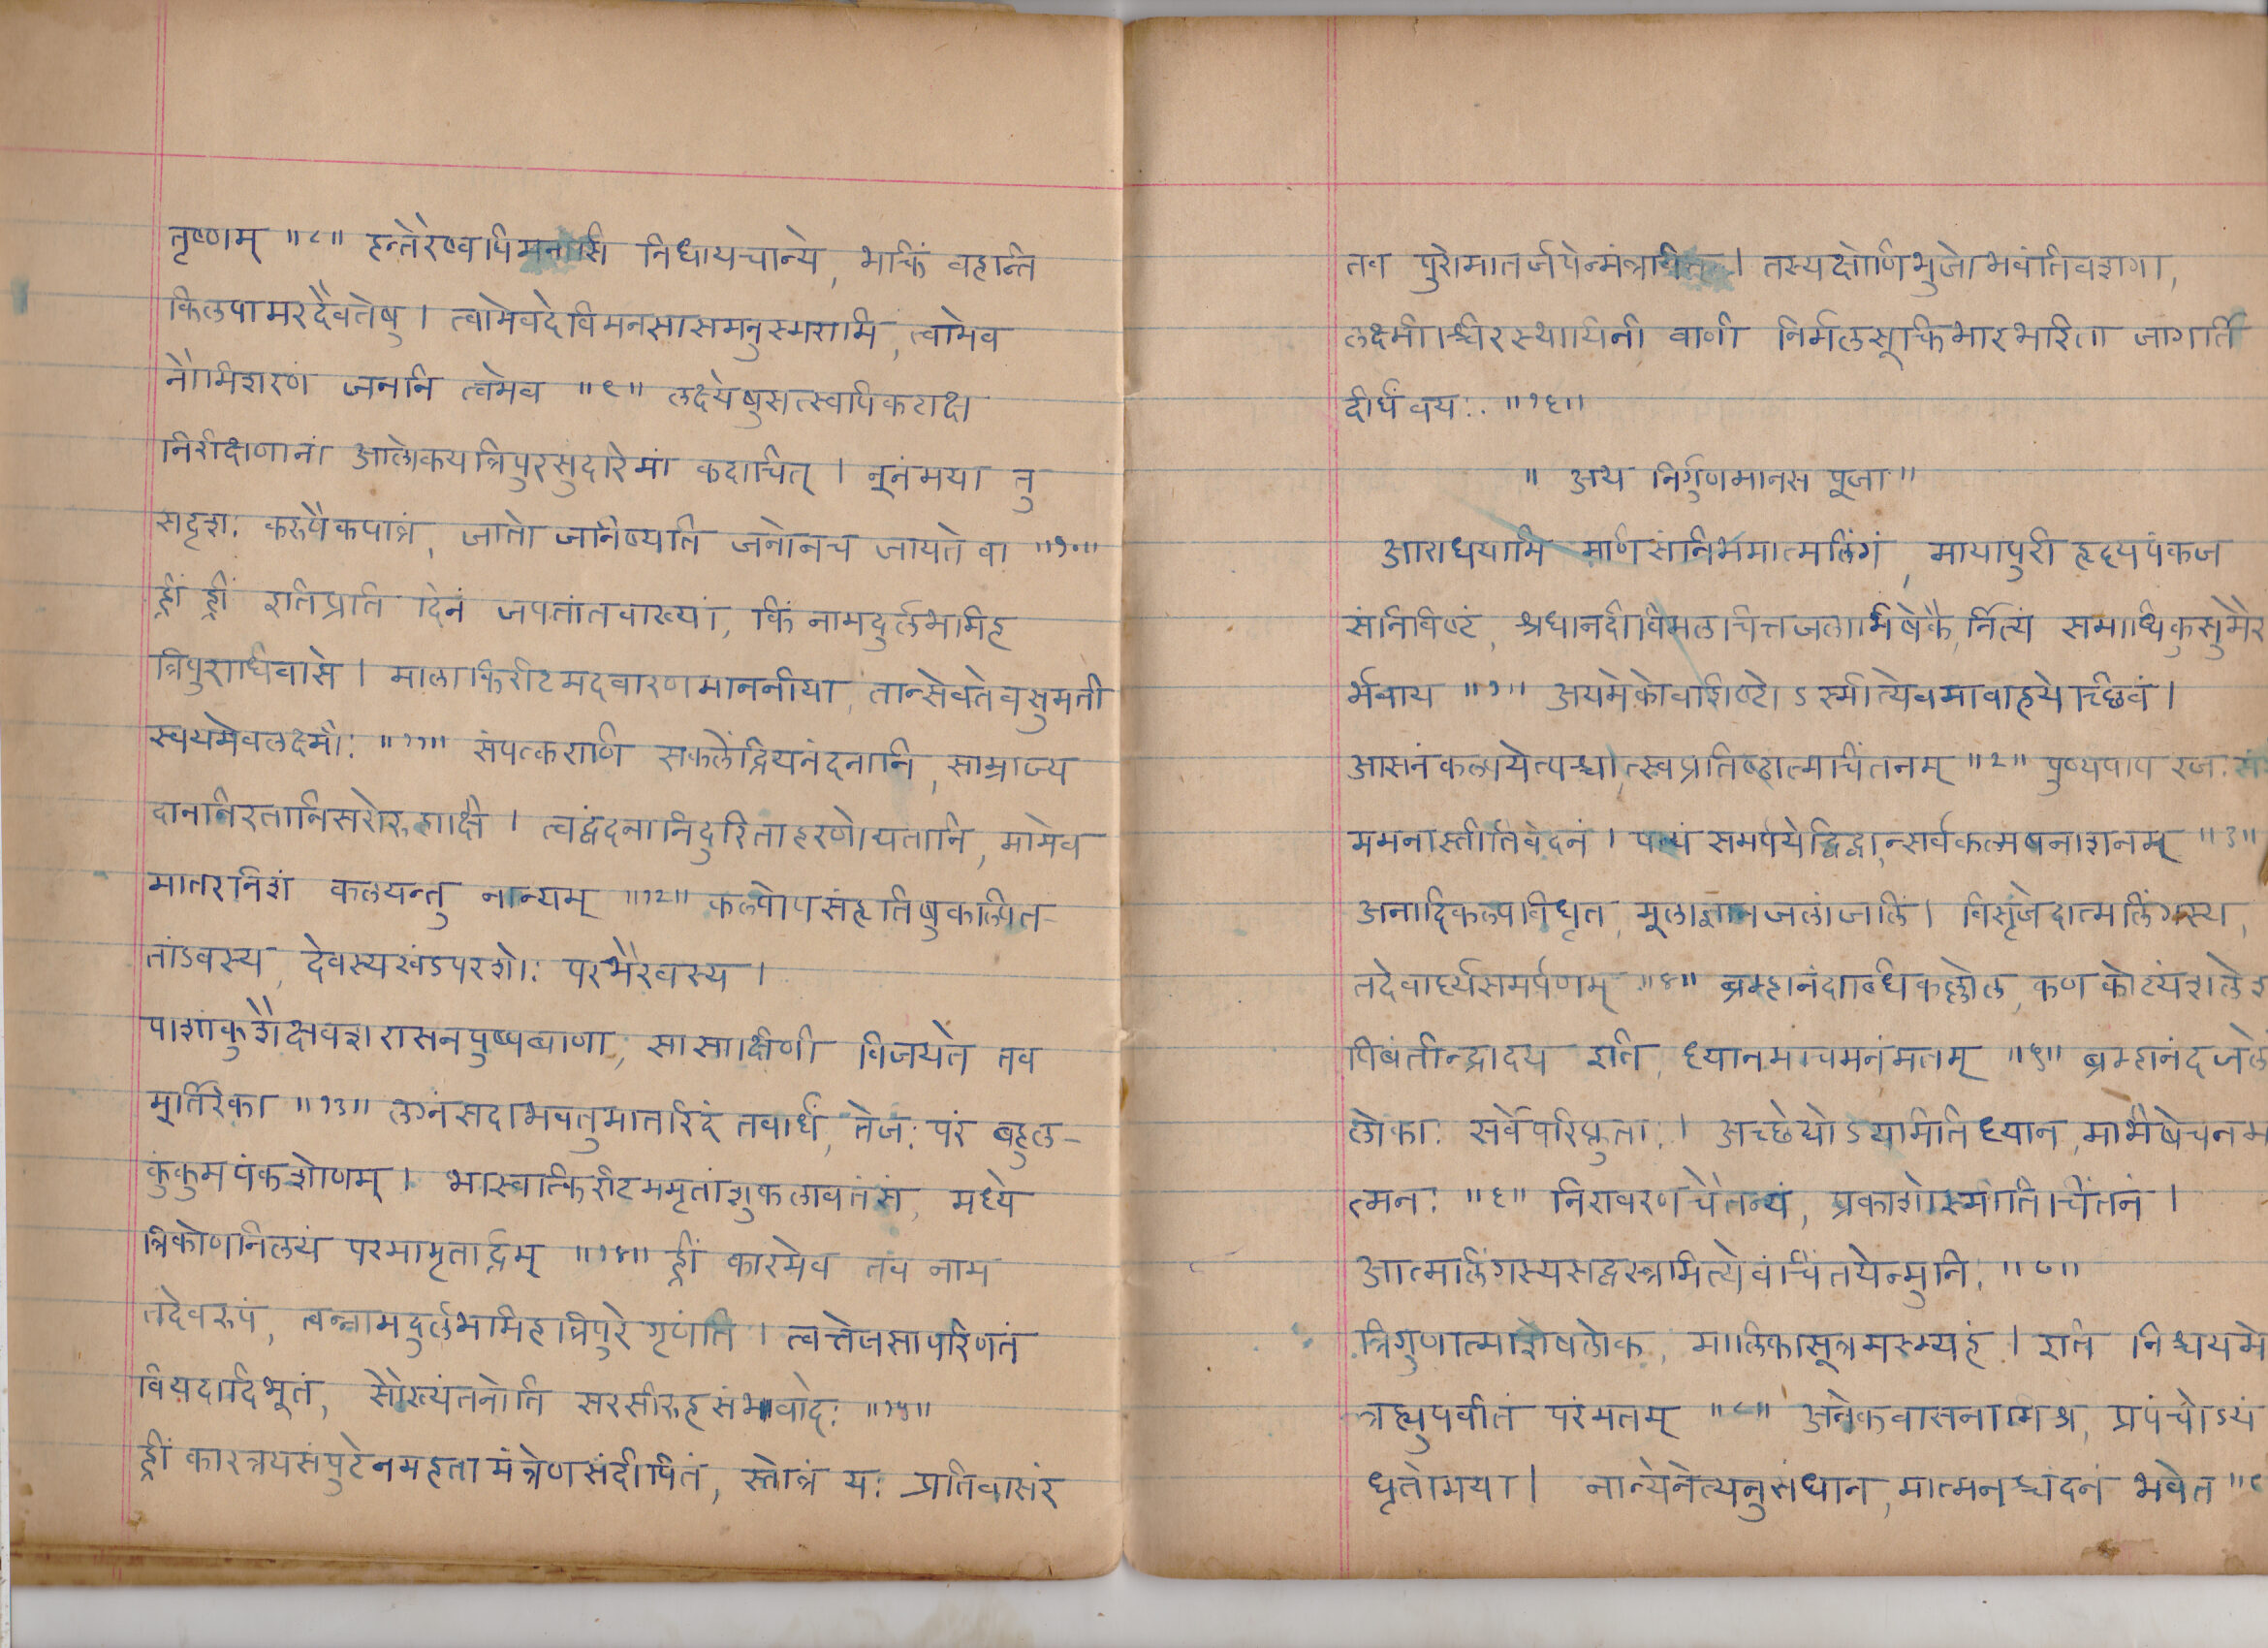 तृष्णम् ॥८॥ हन्तेरेष्वपिमनांसि निधायचान्ये, भक्तिं वहन्ति
किलपामरदैवतेषु । त्वामेवदेविमनसासमनुस्मरामि, त्वामेव
नौमिशरणं जननि त्वमेव ॥९॥ लक्ष्येषुसत्स्वपिकटाक्ष
निरीक्षणानां आलोकयत्रिपुरसुदारिमां कदाचित् । नूनंमया तु
सदृश: करुपैकपात्रं, जातो जनिष्यति जनोनच जायते वा ॥१०॥
ह्रीं ह्रीं इतिप्रति दिनं जपतांतवाख्यां, किं नामदुर्लभमिह
त्रिपुराधिवासे । मालाकिरीटमदवारणमाननीया, तान्सेवतेवसुमती
स्वयमेवलक्ष्मी: ॥११॥ संपत्कराणि सकलेंद्रियनंदनानि, साम्राज्य
दाननिरतानिसरोरुहाक्षि । त्वद्वंदनानिदुरिताहरणोद्यतानि, मामेव
मातरनिशं कलयन्तु नान्यम् ॥१२॥ कल्पोपसंहृतिषुकल्पित-
तांडवस्य, देवस्यखंडपरशो: परभैरवस्य ।
पाशांकुशैक्षवशरासनपुष्पबाणा, सासाक्षिणी विजयते तव
मूर्तिरेका ॥१३॥ लग्नंसदाभवतुमातरिदं तवार्धं, तेज: परं बहुल-
कुंकुमपंकशोणम् । भास्वत्किरीटममृतांशुकलावतंसं, मध्ये
त्रिकोणनिलयं परमामृतार्द्रम् ॥१४॥ ह्रीं कारमेव तव नाम
तदेवरुपं, त्वन्नामदुर्लभमिहत्रिपुरे गृणंति । त्वत्तेजसापरिणतं
वियदादिभूतं, सौख्यंतनोति सरसीरुहसंभवादे: ॥१५॥
ह्रीं कारत्रयसंपुटेनमहता मंत्रेणसंदीपितं, स्तोत्रं य: प्रतिवासरं
तव पुरोमातर्जपेन्मंत्रवित् । तस्यक्षोणिभुजोभवंतिवशगा,
लक्ष्मीश्चिरस्थायिनी वाणी निर्मलसूक्तिभारभरिता जागर्ति
दीर्घं वय: ॥१६॥
॥ अथ निर्गुणमानस पूजा ॥
आराधयामि मणिसंनिभमात्मलिंगं, मायापुरी हृदयपंकज
संनिविष्टं, श्रधानदीविमलचित्तजलाभिषेकै, र्नित्यं समाधिकुसुमैर
र्भवाय ॥१॥ अयमेकोवशिष्टोऽस्मीत्येवमावाहयेच्छिवं ।
आसनंकल्पयेत्पश्चा,त्स्वप्रतिष्ठात्मचिंतनम् ॥२॥ पुण्यपाप रज: सं
ममनास्तीतिवेदनं । पाद्यं समर्पयेद्विद्वा,न्सर्वकल्मषनाशनम् ॥३॥
अनादिकल्पविधृत, मूलाज्ञानजलांजलिं । विसृजेदात्मलिंगस्य,
तदेवार्घ्यसमर्पणम् ॥४॥ ब्रम्हानंदाब्धिकल्लोल, कण कोट्यंशलेश
पिबंतीन्द्रादय इति, ध्यानमाचमनंमतम् ॥५॥ ब्रम्हानंदजले
लोका: सर्वेपरिप्लुता: । अच्छेद्योऽयमिति ध्यान,मभिषेचनम
त्मन: ॥६॥ निरावरणचैतन्यं, प्रकाशोस्मीतिचिंतनं ।
आत्मलिंगस्यसद्वस्त्रमित्येवंचिंतयेन्मुनि: ॥७॥
त्रिगुणात्माशेषलोक, मालिकासूत्रमस्म्यहं । इति निश्चयमे
त्रह्युपवीतं परंमतम् ॥८॥ अनेकवासनामिश्र, प्रपंचोऽयं
धृतोमया । नान्येनेत्यनुसंधान,मात्मनश्चंदनं भवेत ॥९